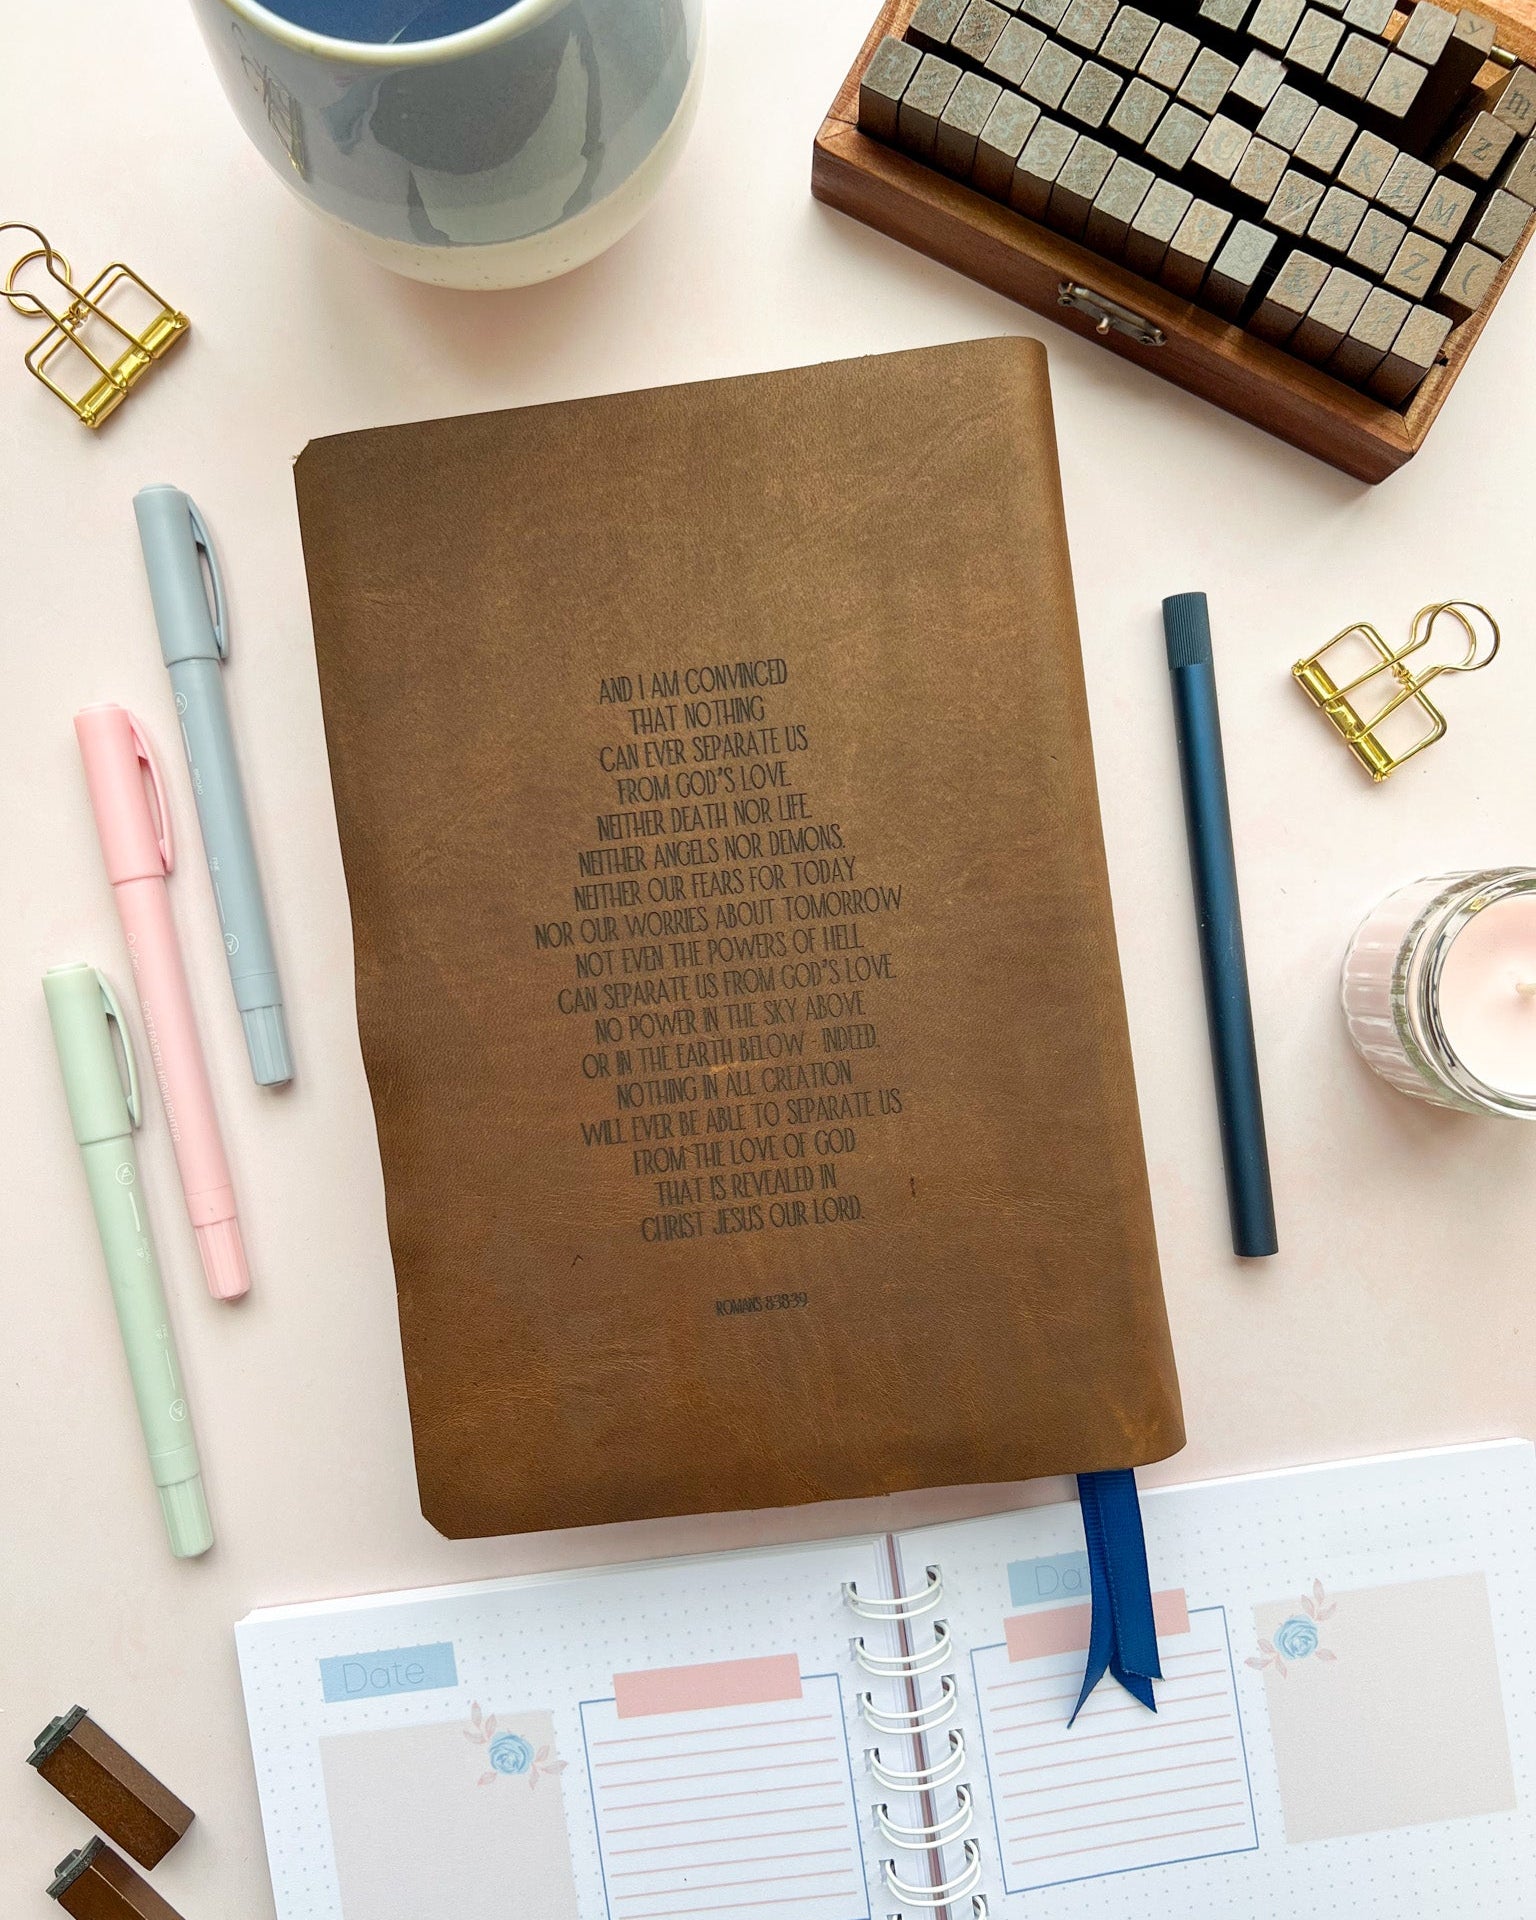 AND I AM CONVINCED
THAT NOTHING
CAN EVER SEPARATE US
FROM GOD'S LOVE.
NEITHER DEATH NOR LIFE,
NEITHER ANGELS NOR DEMONS,
NEITHER OUR FEARS FOR TODAY
NOR OUR WORRIES ABOUT TOMORROW
NOT EVEN THE POWERS OF HELL
CAN SEPARATE US FROM GOD'S LOVE.
NO POWER IN THE SKY ABOVE
OR IN THE EARTH BELOW - INDEED,
NOTHING IN ALL CREATION
WILL EVER BE ABLE TO SEPARATE US
FROM THE LOVE OF GOD
THAT IS REVEALED IN
CHRIST JESUS OUR LORD.
ROMANS 8:38-39
SOFT PASTEL HIGHLIGHTER
Date
m
Z
K
M
Z
(